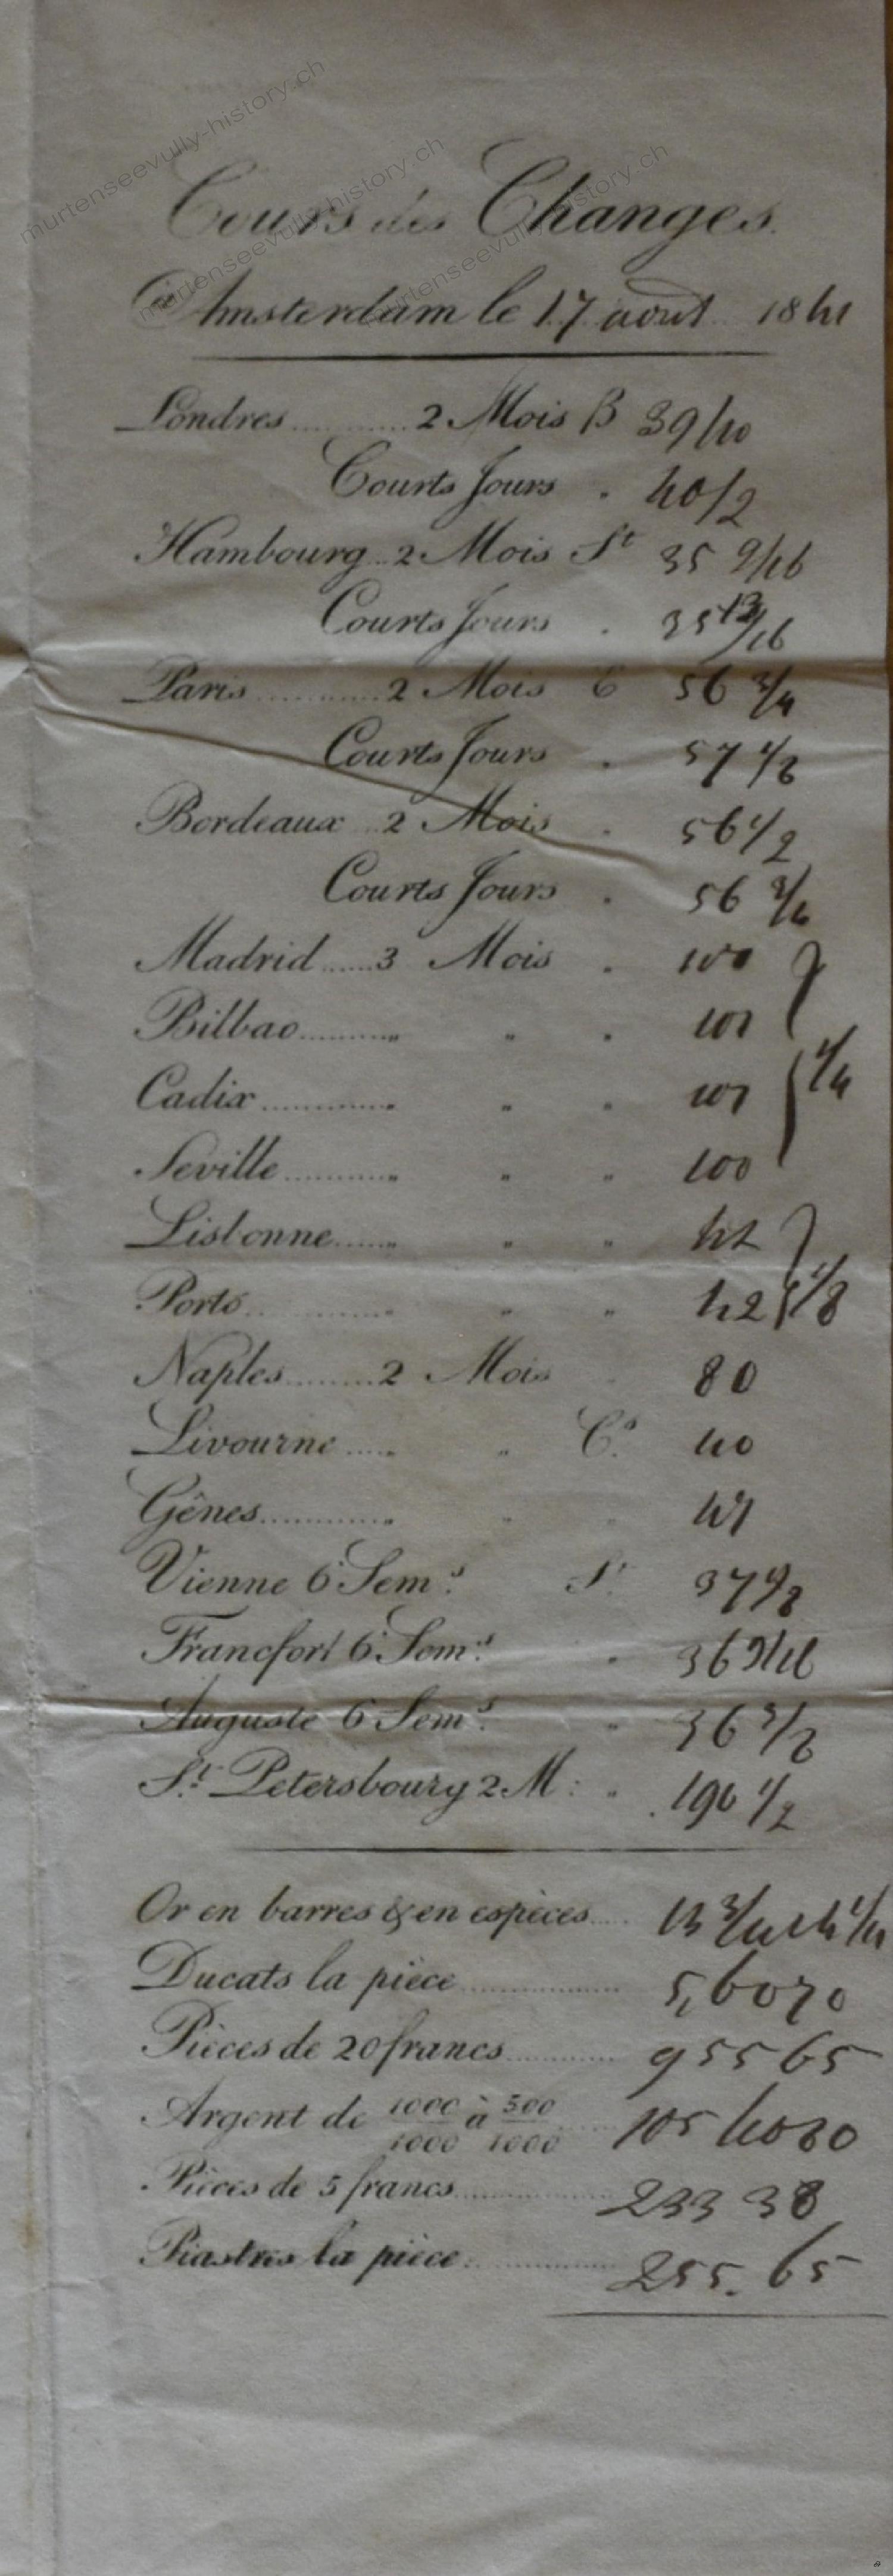 murtenseevully-history.ch
murtenseevully-history.ch
murtenseevully-history.ch
Cours des Changes.
à Amsterdam le 17 aout 1841
Londres 2 Mois B 39/40
Courts Jours . 40/2
Hambourg 2 Mois St 35 9/16
Courts Jours . 35 13/16
Paris 2 Mois C 56 3/4
Courts Jours . 57 1/8
Bordeaux 2 Mois . 56 1/2
Courts Jours . 56 3/4
Madrid 3 Mois . 100
Bilbao „ „ . 101
1/4
Cadix „ „ „ 101
Seville „ „ „ 100
Lisbonne „ „ „ 42
Porto „ „ „ 42 1/8
Naples 2 Mois 80
Livourne „ „ Cs. 40
Gênes „ „ „ 47
Vienne 6 Sem.s St 37
Francfort 6 Sem.s . 36 9/16
Auguste 6 Sem.s „ 36
St. Petersbourg 2 M: „ 190 1/2
Or en barres & en espèces 13 3/4 a 14 1/4
Ducats la pièce 5,60 70
Pièces de 20 francs 955 65
Argent de 1000/1000 à 500/1000 105 40 80
Pièces de 5 francs 233 38
Piastres la pièce 255. 65